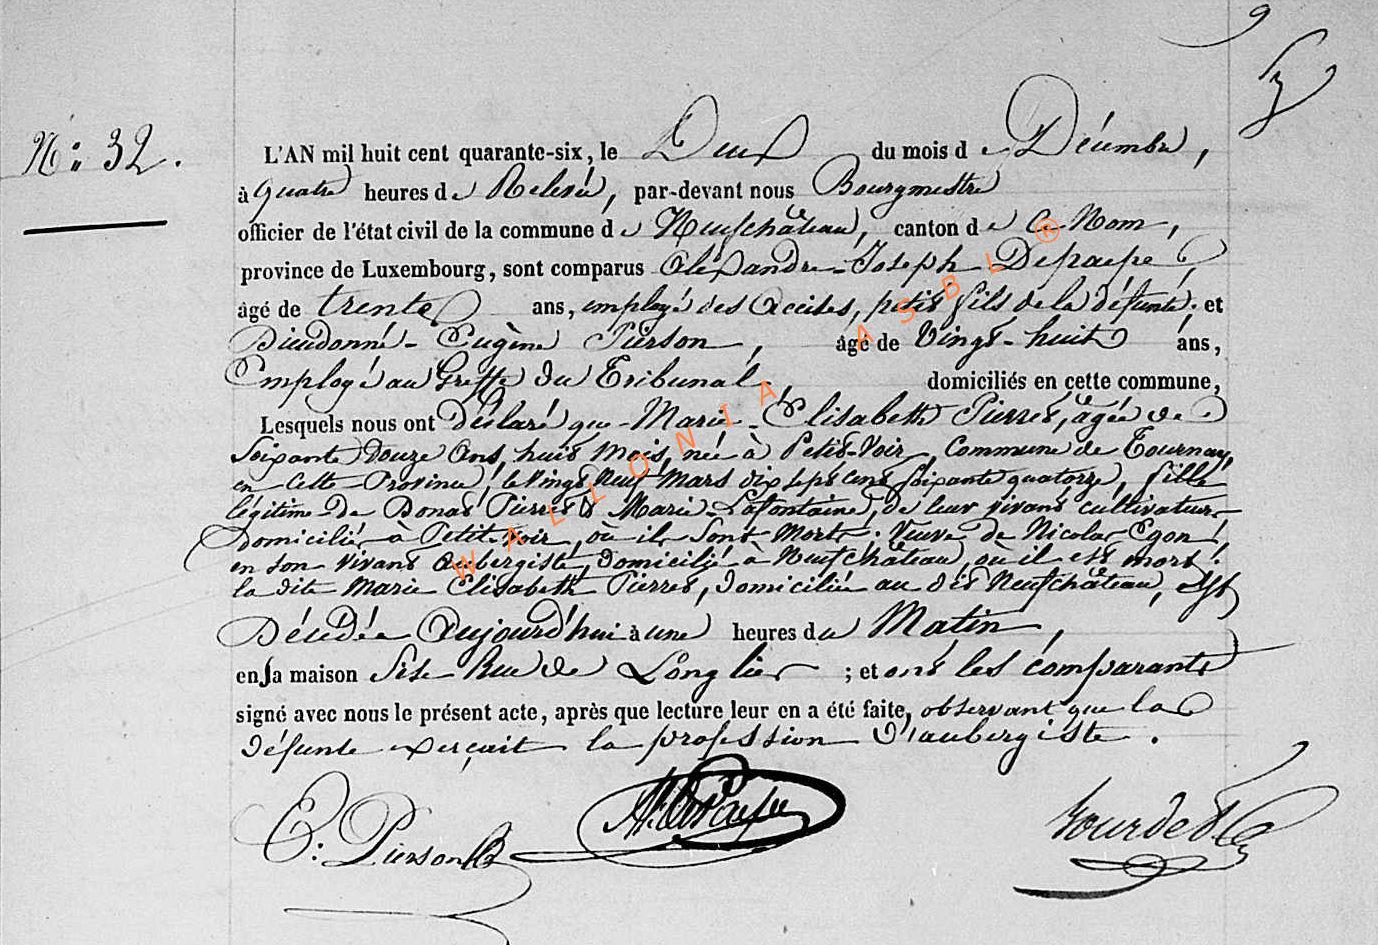 N.º 32.
L'AN mil huit cent quarante-six, le Deux du mois de Décembre,
à quatre heures de Relevée, par-devant nous Bourgmestre
officier de l'état civil de la commune de Neufchâteau, canton de Ce Nom,
province de Luxembourg, sont comparus Aléxandre-Joseph Depaepe,
âgé de trente ans, employé des Accises, petit fils de la défunte. et
Dieudonné-Eugène Pierson, âgé de Vingt-huit ans,
Employé au Greffe du Tribunal, domiciliés en cette commune,
Lesquels nous ont Déclaré que Marie-Elisabeth Pierret, âgée de
Soixante Douze Ans, huit Mois, née à Petit-Voir, Commune de Tournay,
en Cette Province, le Vingt Neuf Mars dix sept cent soixante quatorze, fille
légitime de Donat Pierret & Marie Lafontaine, de leur vivant cultivateurs
Domiciliés à Petit-Voir, où ils sont morts. Veuve de Nicolas
en son vivant Aubergiste, domicilié à Neufchâteau, où il est mort;
la dite Marie Elisabeth Pierret, domiciliée au dit Neufchâteau, est
Décédée Aujourd'hui à une heures du Matin,
en sa maison Sise Rue de Longlier ; et ont les comparants
signé avec nous le présent acte, après que lecture leur en a été faite, observant que la
défunte exerçait la profession d'aubergiste.
E. Pierson
WALLONIA ASBL ®